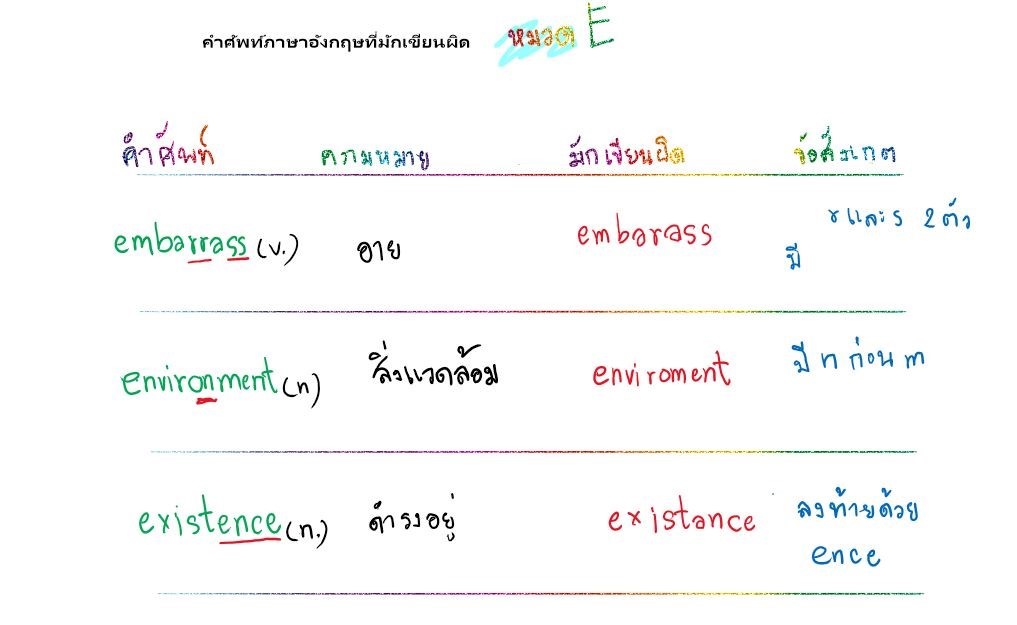 คำศัพท์ภาษาอังกฤษที่มักเขียนผิด หมวด E
คำศัพท์ ความหมาย มักเขียนผิด ข้อสังเกต
embarrass (v.) อาย embarass มี r และ s 2 ตัว
environment (n) สิ่งแวดล้อม enviroment มี n ก่อน m
existence (n.) ดำรงอยู่ existance ลงท้ายด้วย
ence